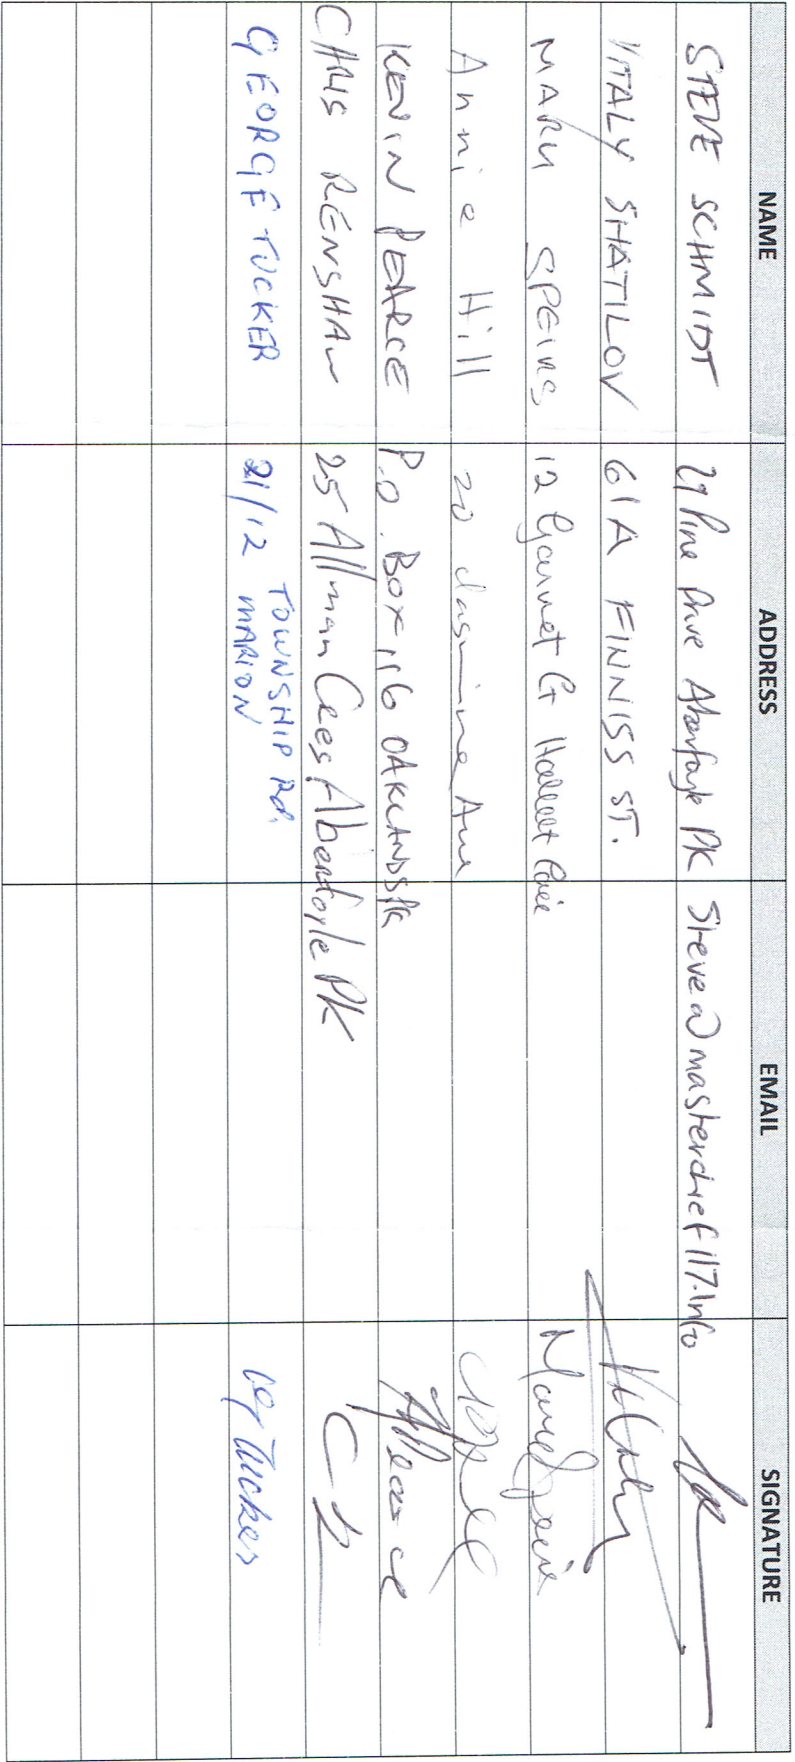 NAME ADDRESS EMAIL SIGNATURE
STEVE SCHMIDT 29 Pine Drive Aberfoyle PK Steve@masterchief117.info
VITALY SHATILOV 61A FINNISS ST.
MARY SPEIRS 12 Garnet Ct Hallett Cove
Annie Hill 20 Jasmine Ave
KEVIN PEARCE P.O. Box 116 OAKLANDS PK
CHRIS RENSHAW 25 Allman Cres Aberfoyle PK
GEORGE TUCKER 21/12 TOWNSHIP Rd. Tucker
MARION